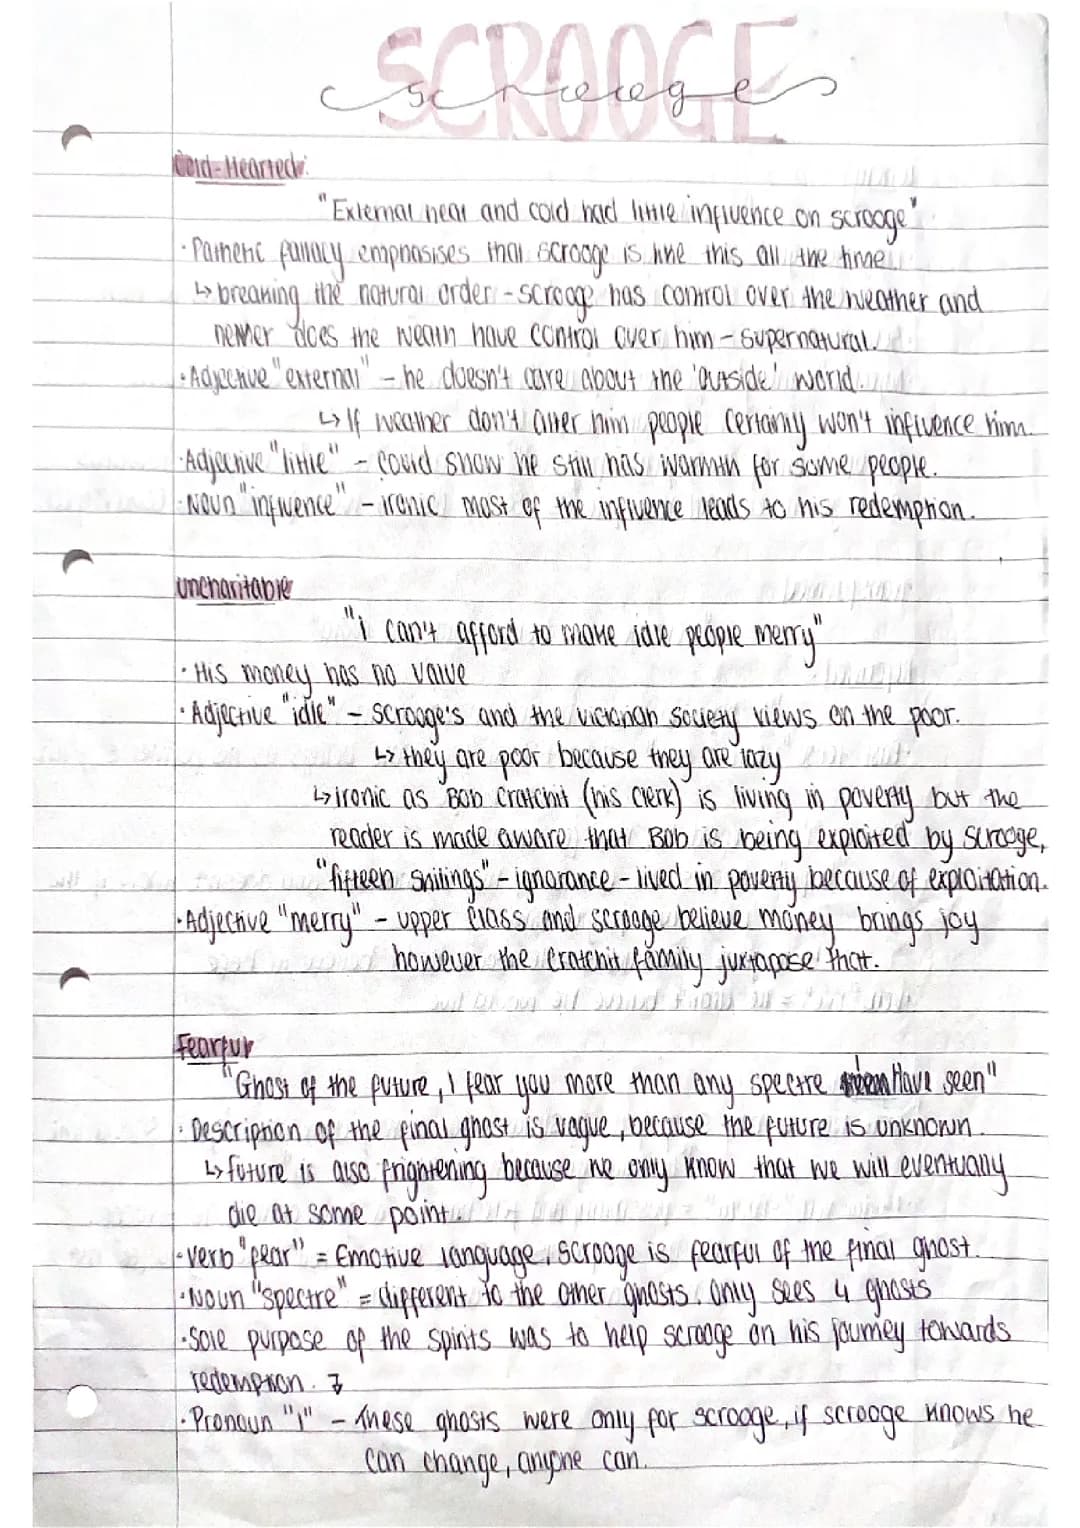 SCROOGE
scrooge
Cold-Hearted:
"External heat and cold had little influence on scrooge"
· Pathetic fallacy emphasises that scrooge is like this all the time.
↳ breaking the natural order - scrooge has control over the weather and
neither does the weath have control over him - supernatural.
· Adjective "external" - he doesn't care about the 'outside' world.
↳ If weather don't alter him people certainly won't influence him.
· Adjective "little" - could show he still has warmth for some people.
· Noun "influence" - ironic most of the influence leads to his redemption.
uncharitable
"i can't afford to make idle people merry"
· His money has no value
· Adjective "idle" - scrooge's and the victorian society views on the poor.
↳ they are poor because they are lazy
↳ ironic as Bob Cratchit (his clerk) is living in poverty but the
reader is made aware that Bob is being exploited by scrooge,
"fifteen shilings" - ignorance - lived in poverty because of exploitation.
· Adjective "merry" - upper class and scrooge believe money brings joy
however the cratchit family juxtapose that.
Fearful
"Ghost of the future, I fear you more than any spectre I Have seen"
· Description of the final ghost is vague, because the future is unknown.
↳ future is also frightening because we only know that we will eventually
die at some point.
· verb "fear" = Emotive language, scrooge is fearful of the final ghost.
· Noun "spectre" = different to the other ghosts. only sees 4 ghosts
· Sole purpose of the spirits was to help scrooge on his journey towards
redemption.
· Pronoun "I" - These ghosts were only for scrooge, if scrooge knows he
can change, anyone can.